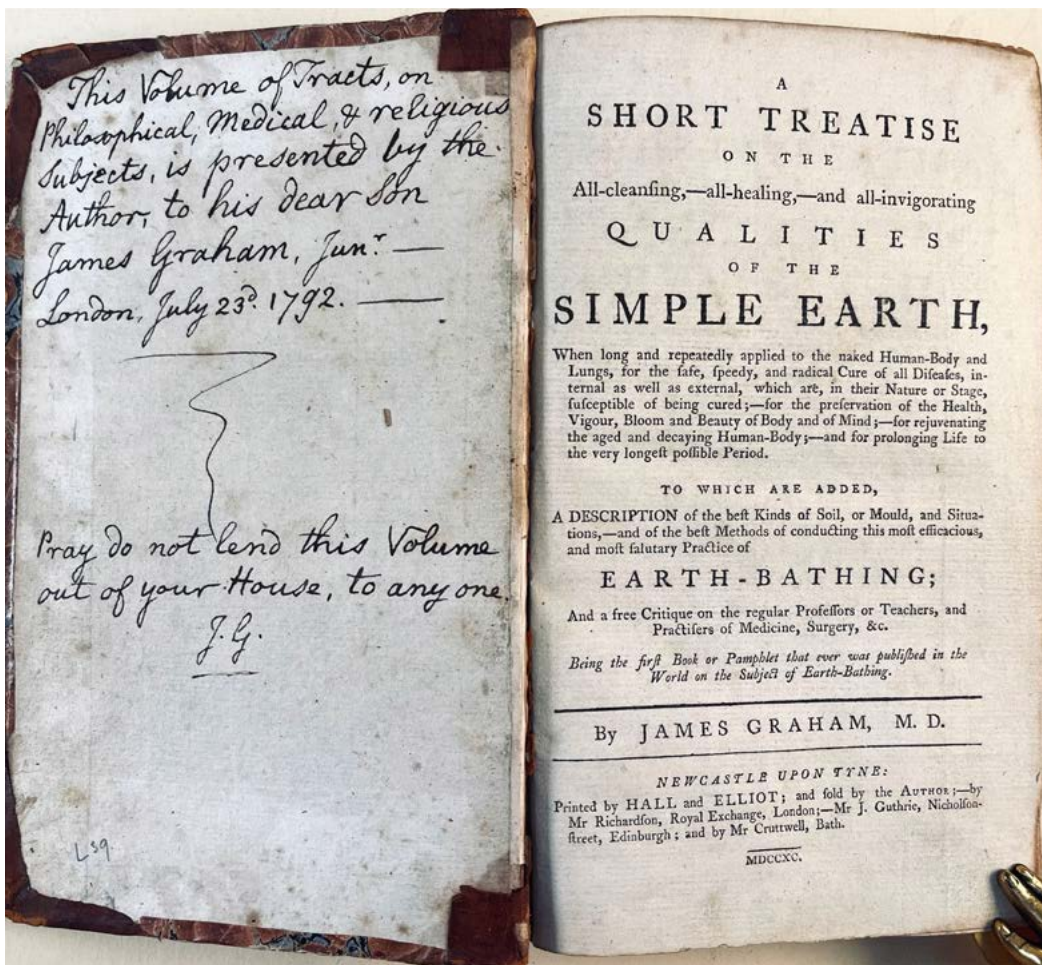 This Volume of Tracts, on
Philosophical, Medical, & religious
Subjects, is presented by the
Author, to his dear Son
James Graham, Junr. —
London, July 23d. 1792. —
Pray do not lend this Volume
out of your House, to any one.
J.G.
L39
A
SHORT TREATISE
ON THE
All-cleanſing,—all-healing,—and all-invigorating
QUALITIES
OF THE
SIMPLE EARTH,
When long and repeatedly applied to the naked Human-Body and
Lungs, for the ſafe, ſpeedy, and radical Cure of all Diſeaſes, in-
ternal as well as external, which are, in their Nature or Stage,
ſuſceptible of being cured;—for the preſervation of the Health,
Vigour, Bloom and Beauty of Body and of Mind;—for rejuvenating
the aged and decaying Human-Body;—and for prolonging Life to
the very longeſt poſſible Period.
TO WHICH ARE ADDED,
A DESCRIPTION of the beſt Kinds of Soil, or Mould, and Situa-
tions,—and of the beſt Methods of conducting this moſt efficacious,
and moſt ſalutary Practice of
EARTH-BATHING;
And a free Critique on the regular Profeſſors or Teachers, and
Practiſers of Medicine, Surgery, &c.
Being the firſt Book or Pamphlet that ever was publiſhed in the
World on the Subject of Earth-Bathing.
By JAMES GRAHAM, M. D.
NEWCASTLE UPON TYNE:
Printed by HALL and ELLIOT; and ſold by the AUTHOR;—by
Mr Richardſon, Royal Exchange, London;—Mr J. Guthrie, Nicholſon-
ſtreet, Edinburgh; and by Mr Cruttwell, Bath.
MDCCXC.